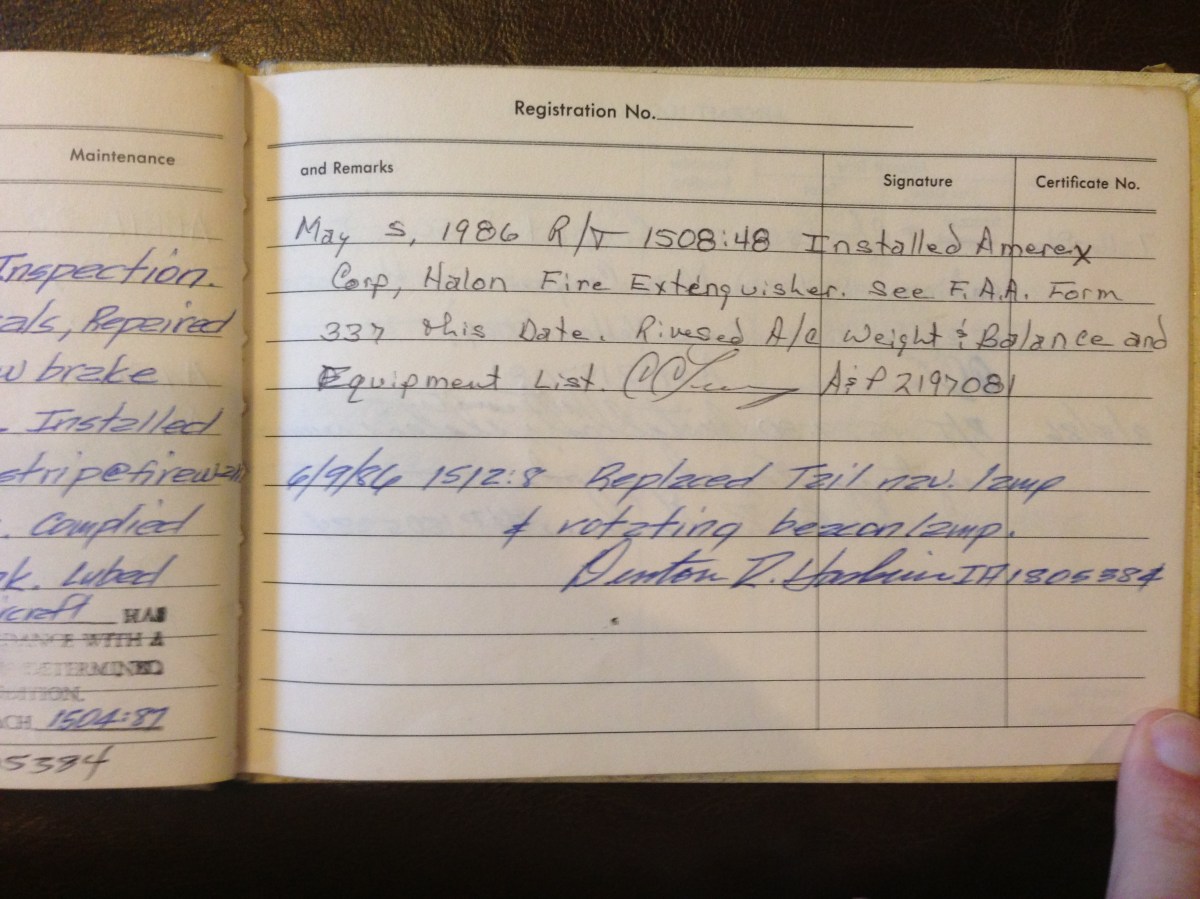 Maintenance
Inspection.
als, Repeired
w brake
. Installed
strip@firewall
. Complied
k. Lubed
craft HAS
DANCE WITH A
DETERMINED
DITION.
ACH 1504:87
5384
Registration No.
and Remarks Signature Certificate No.
May 5, 1986 R/T 1508:48 Installed Amerex
Corp, Halon Fire Extenguisher. See F.A.A. Form
337 this Date. Rivesed A/C Weight & Balance and
Equipment List. A&P 2197081
6/9/86 1512:8 Replaced Tail nav. lamp
& rotating beacon lamp.
Denton R. IA 1805384